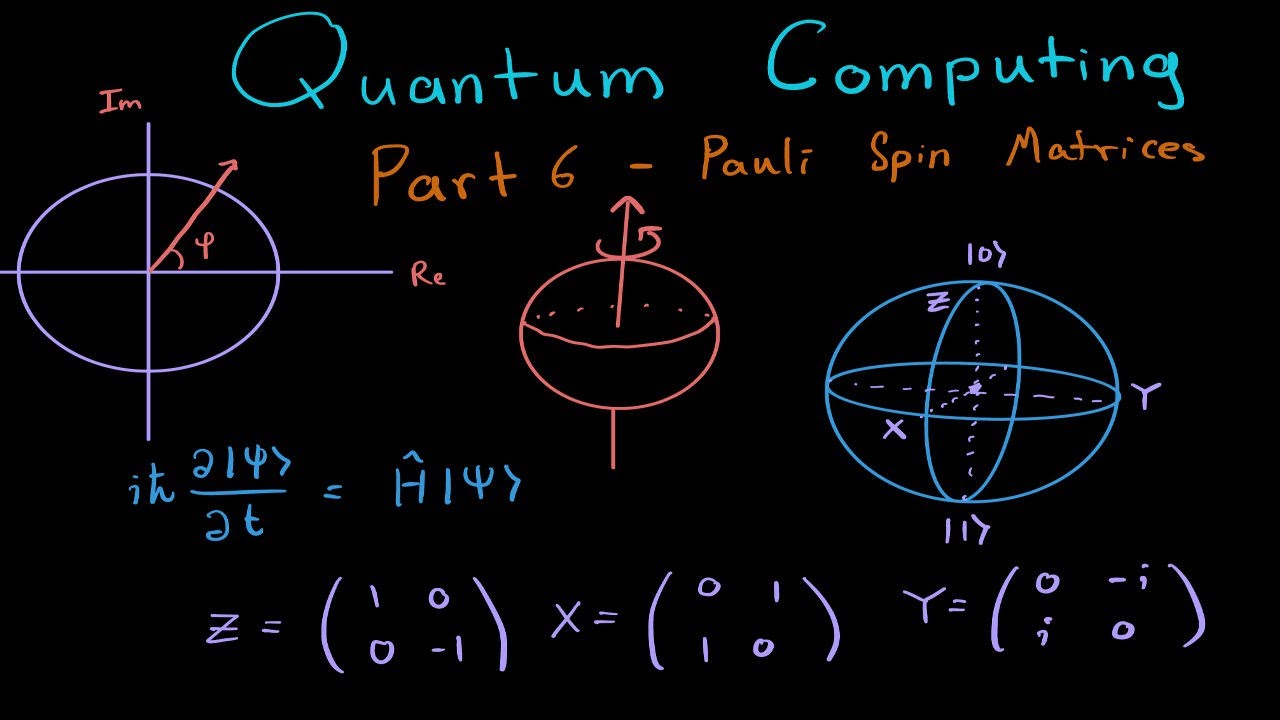 Quantum Computing
Part 6 - Pauli Spin Matrices
Im
φ
Re
|0⟩
Z
Y
X
|1⟩
iħ ∂|Ψ⟩/∂t = Ĥ|Ψ⟩
Z = (1 0 X = (0 1 Y = (0 -i
0 -1) 1 0) i 0)